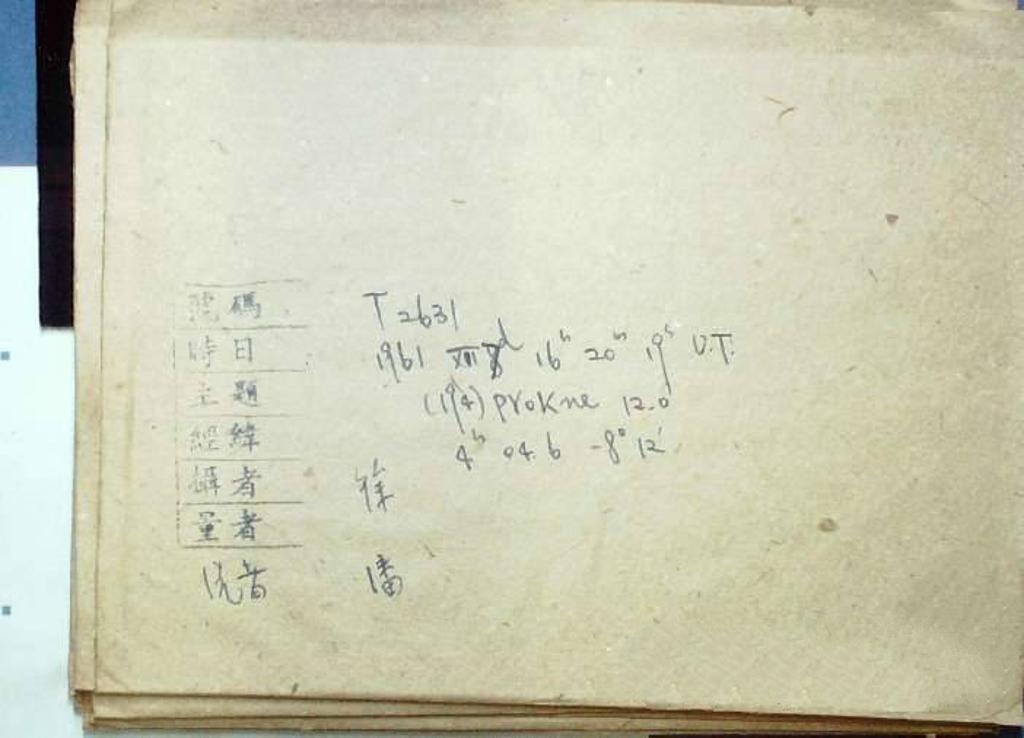 號碼 T 2631
時日 1961 XII 8ᵈ 16ʰ 20ᵐ 19ˢ U.T.
主題 (194) Prokne 12.0
經緯 4ʰ 04.6 -8° 12'
攝者 徐
量者
洗者 潘